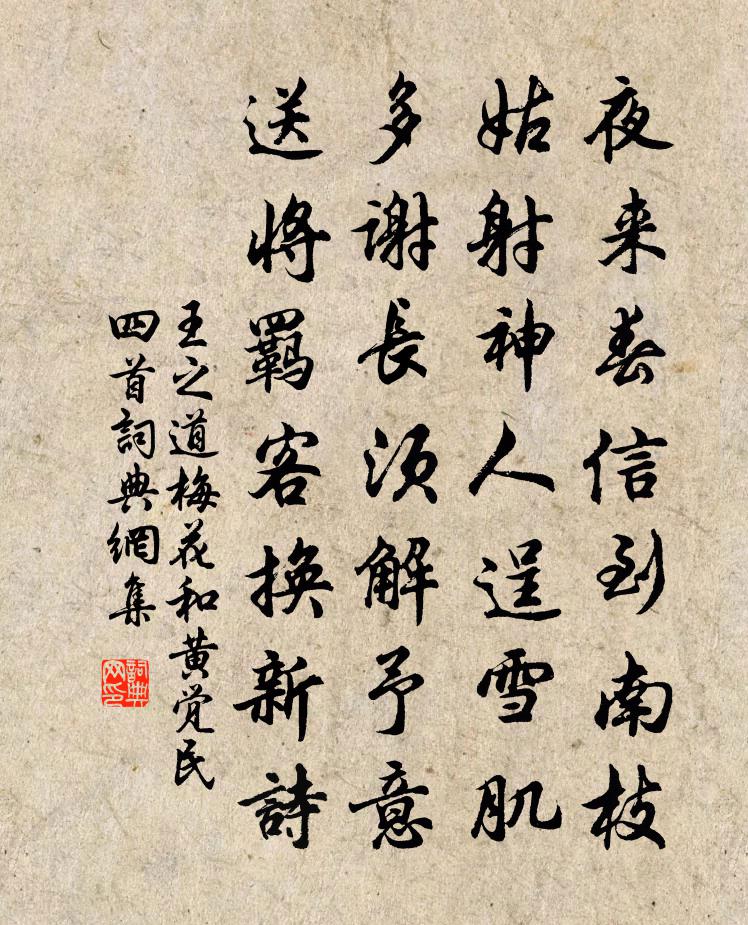 夜来春信到南枝
姑射神人逞雪肌
多謝長須解予意
送將羈客換新詩
王之道梅花和黄觉民
四首詞典網集
詞典网印